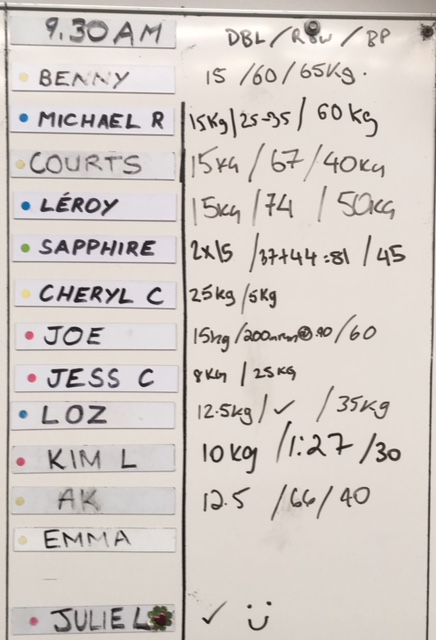 9.30 AM DBL / Row / BP
BENNY 15 / 60 / 65kg.
MICHAEL R 15kg / 25-35 / 60 kg
COURTS 15kg / 67 / 40kg
LÉROY 15kg / 74 / 50kg
SAPPHIRE 2x15 / 37+44=81 / 45
CHERYL C 25kg / 5kg
JOE 15kg / 200m @ / 60
JESS C 8kg / 25kg
LOZ 12.5kg / ✓ / 35kg
KIM L 10 kg / 1:27 / 30
AK 12.5 / 66 / 40
EMMA
JULIE L ✓ :)